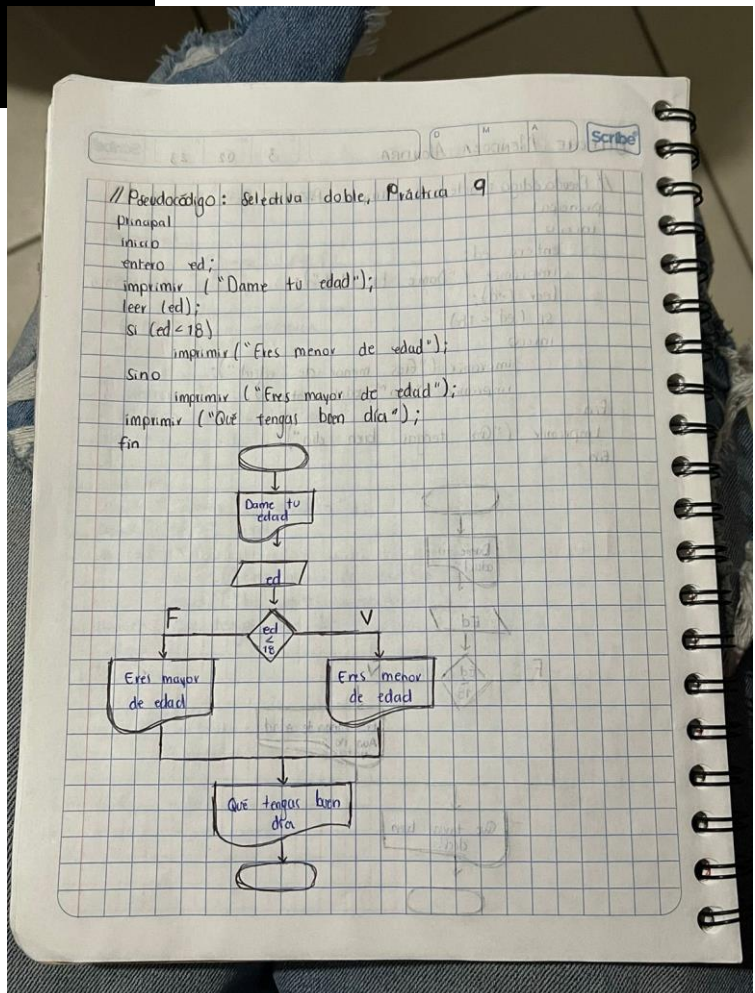 D M A
Scribe
// Pseudocódigo: Selectiva doble, Práctica 9
Principal
inicio
entero ed;
imprimir ("Dame tu edad");
leer (ed);
si (ed < 18)
imprimir ("Eres menor de edad");
Sino
imprimir ("Eres mayor de edad");
imprimir ("Qué tengas buen día");
fin
Dame tu
edad
ed
F
V
ed
<
18
Eres mayor
de edad
Eres menor
de edad
Qué tengas buen
día